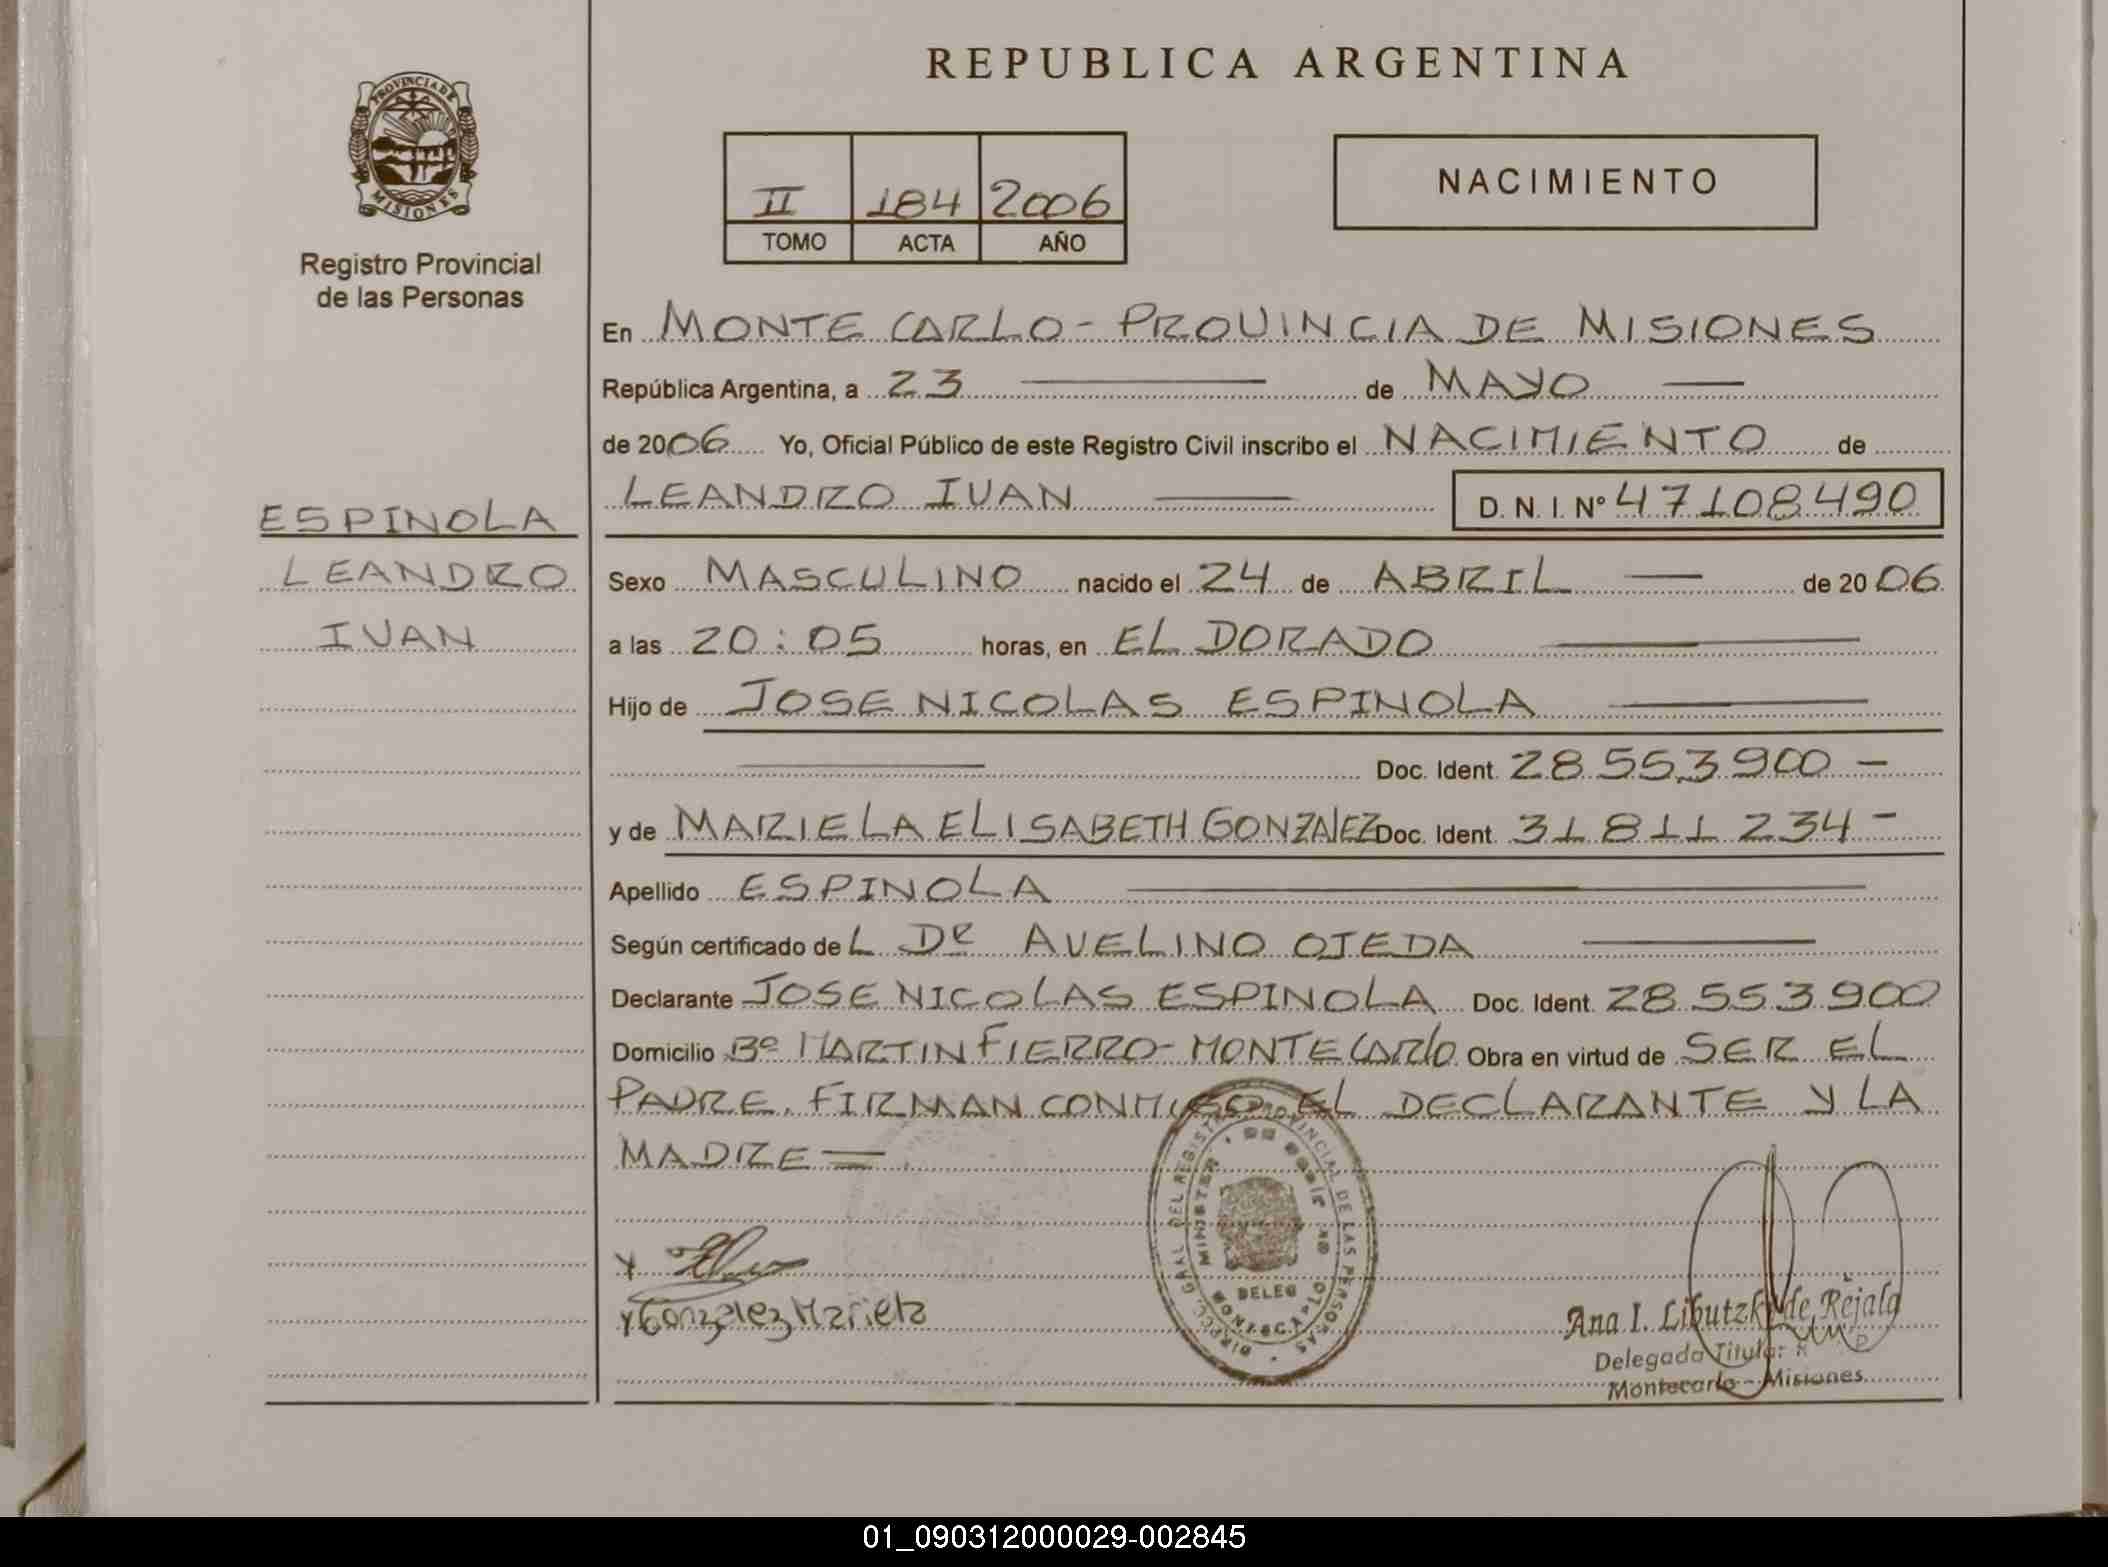 REPUBLICA ARGENTINA
PROVINCIA DE
MISIONES
Registro Provincial
de las Personas
II 184 2006
TOMO ACTA AÑO
NACIMIENTO
En MONTE CARLO - PROVINCIA DE MISIONES
República Argentina, a 23 de MAYO
de 2006 Yo, Oficial Público de este Registro Civil inscribo el NACIMIENTO de
LEANDRO IVAN D. N. I. Nº 47108490
ESPINOLA
LEANDRO
IVAN
Sexo MASCULINO nacido el 24 de ABRIL de 2006
a las 20:05 horas, en EL DORADO
Hijo de JOSE NICOLAS ESPINOLA
Doc. Ident. 28.553.900 -
y de MARIELA ELISABETH GONZALEZ Doc. Ident. 31 811 234 -
Apellido ESPINOLA
Según certificado de L Dr AVELINO OJEDA
Declarante JOSE NICOLAS ESPINOLA Doc. Ident. 28.553.900
Domicilio Bº MARTIN FIERRO - MONTECARLO Obra en virtud de SER EL
PADRE. FIRMAN CONMIGO EL DECLARANTE Y LA
MADRE =
Gonzalez Mariela
DIREC. GRAL DEL REGISTRO PROVINCIAL DE LAS PERSONAS
MINISTER DE
DELEG
MONTECARLO
Ana I. Libutzki de Rejala
Delegada Titular
Montecarlo - Misiones
01_090312000029-002845